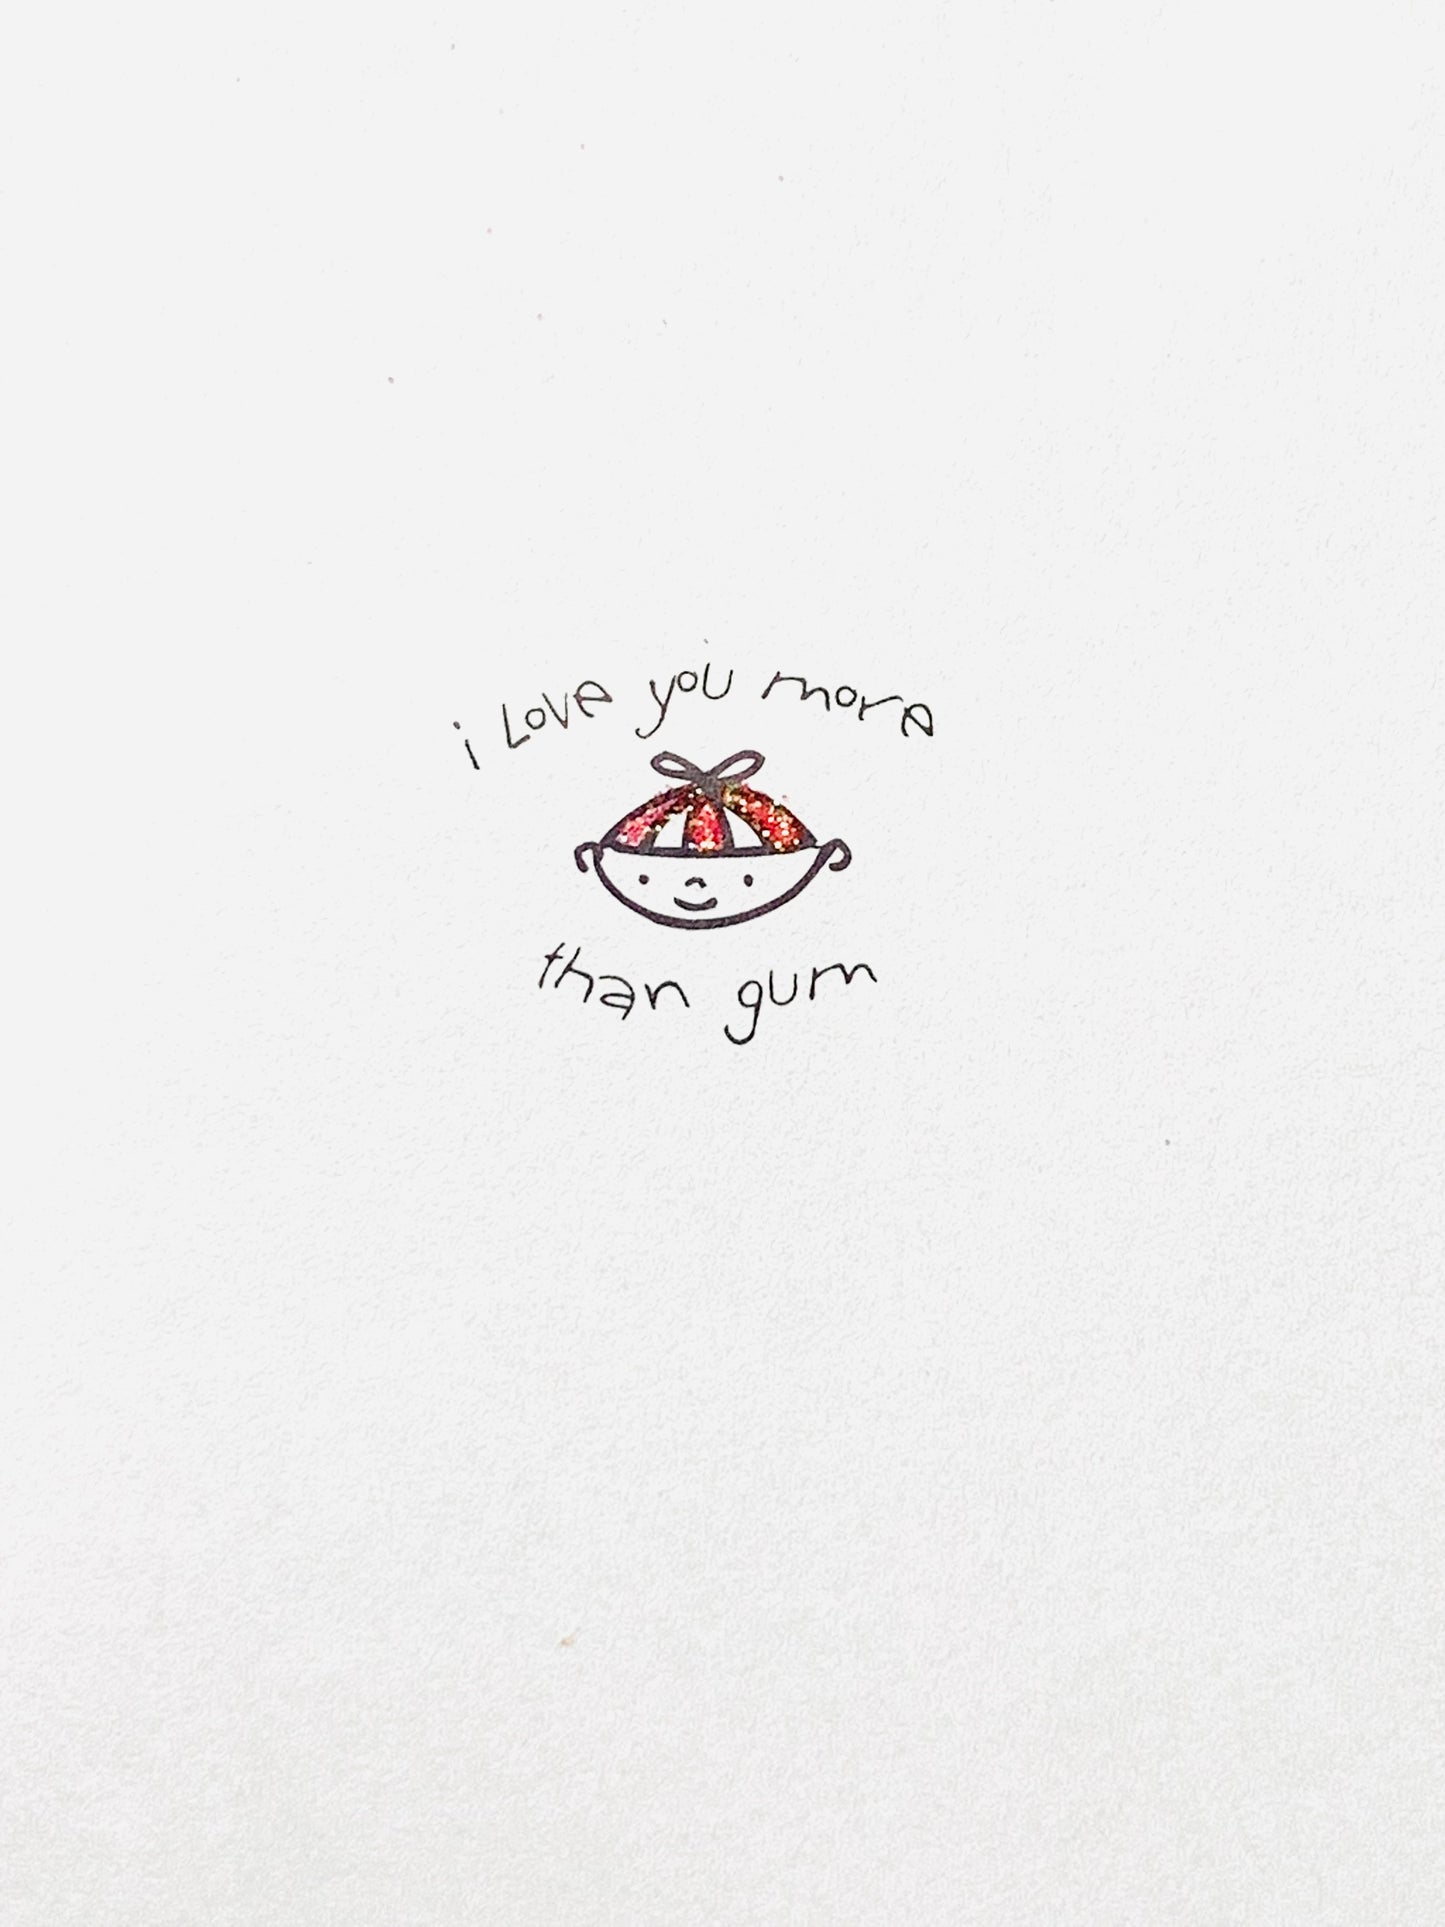 i Love you more
than gum